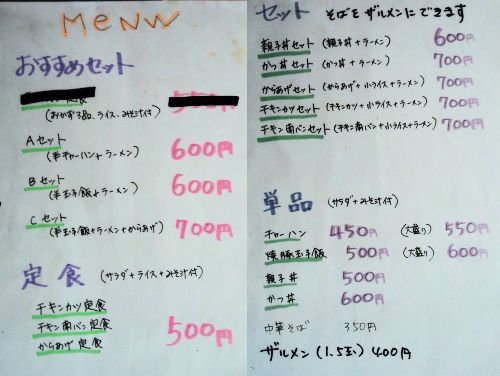 MENW
おすすめセット
定食 550円
(おかず3品、ライス、みそ汁付)
Aセット
(半チャーハン+ラーメン) 600円
Bセット
(半玉子飯+ラーメン) 600円
Cセット
(半玉子飯+ラーメン+からあげ) 700円
定食 (サラダ+ライス+みそ汁付)
チキンカツ定食
チキン南バン定食 500円
からあげ定食
セット そばをザルメンにできます
親子丼セット(親子丼+ラーメン) 600円
かつ丼セット(かつ丼+ラーメン) 700円
からあげセット(からあげ+小ライス+ラーメン) 700円
チキンカツセット(チキンカツ+小ライス+ラーメン) 700円
チキン南バンセット(チキン南バン+小ライス+ラーメン) 700円
単品 (サラダ+みそ汁付)
チャーハン 450円 (大盛り) 550円
焼豚玉子飯 500円 (大盛り) 600円
親子丼 500円
かつ丼 600円
中華そば 350円
ザルメン(1.5玉) 400円